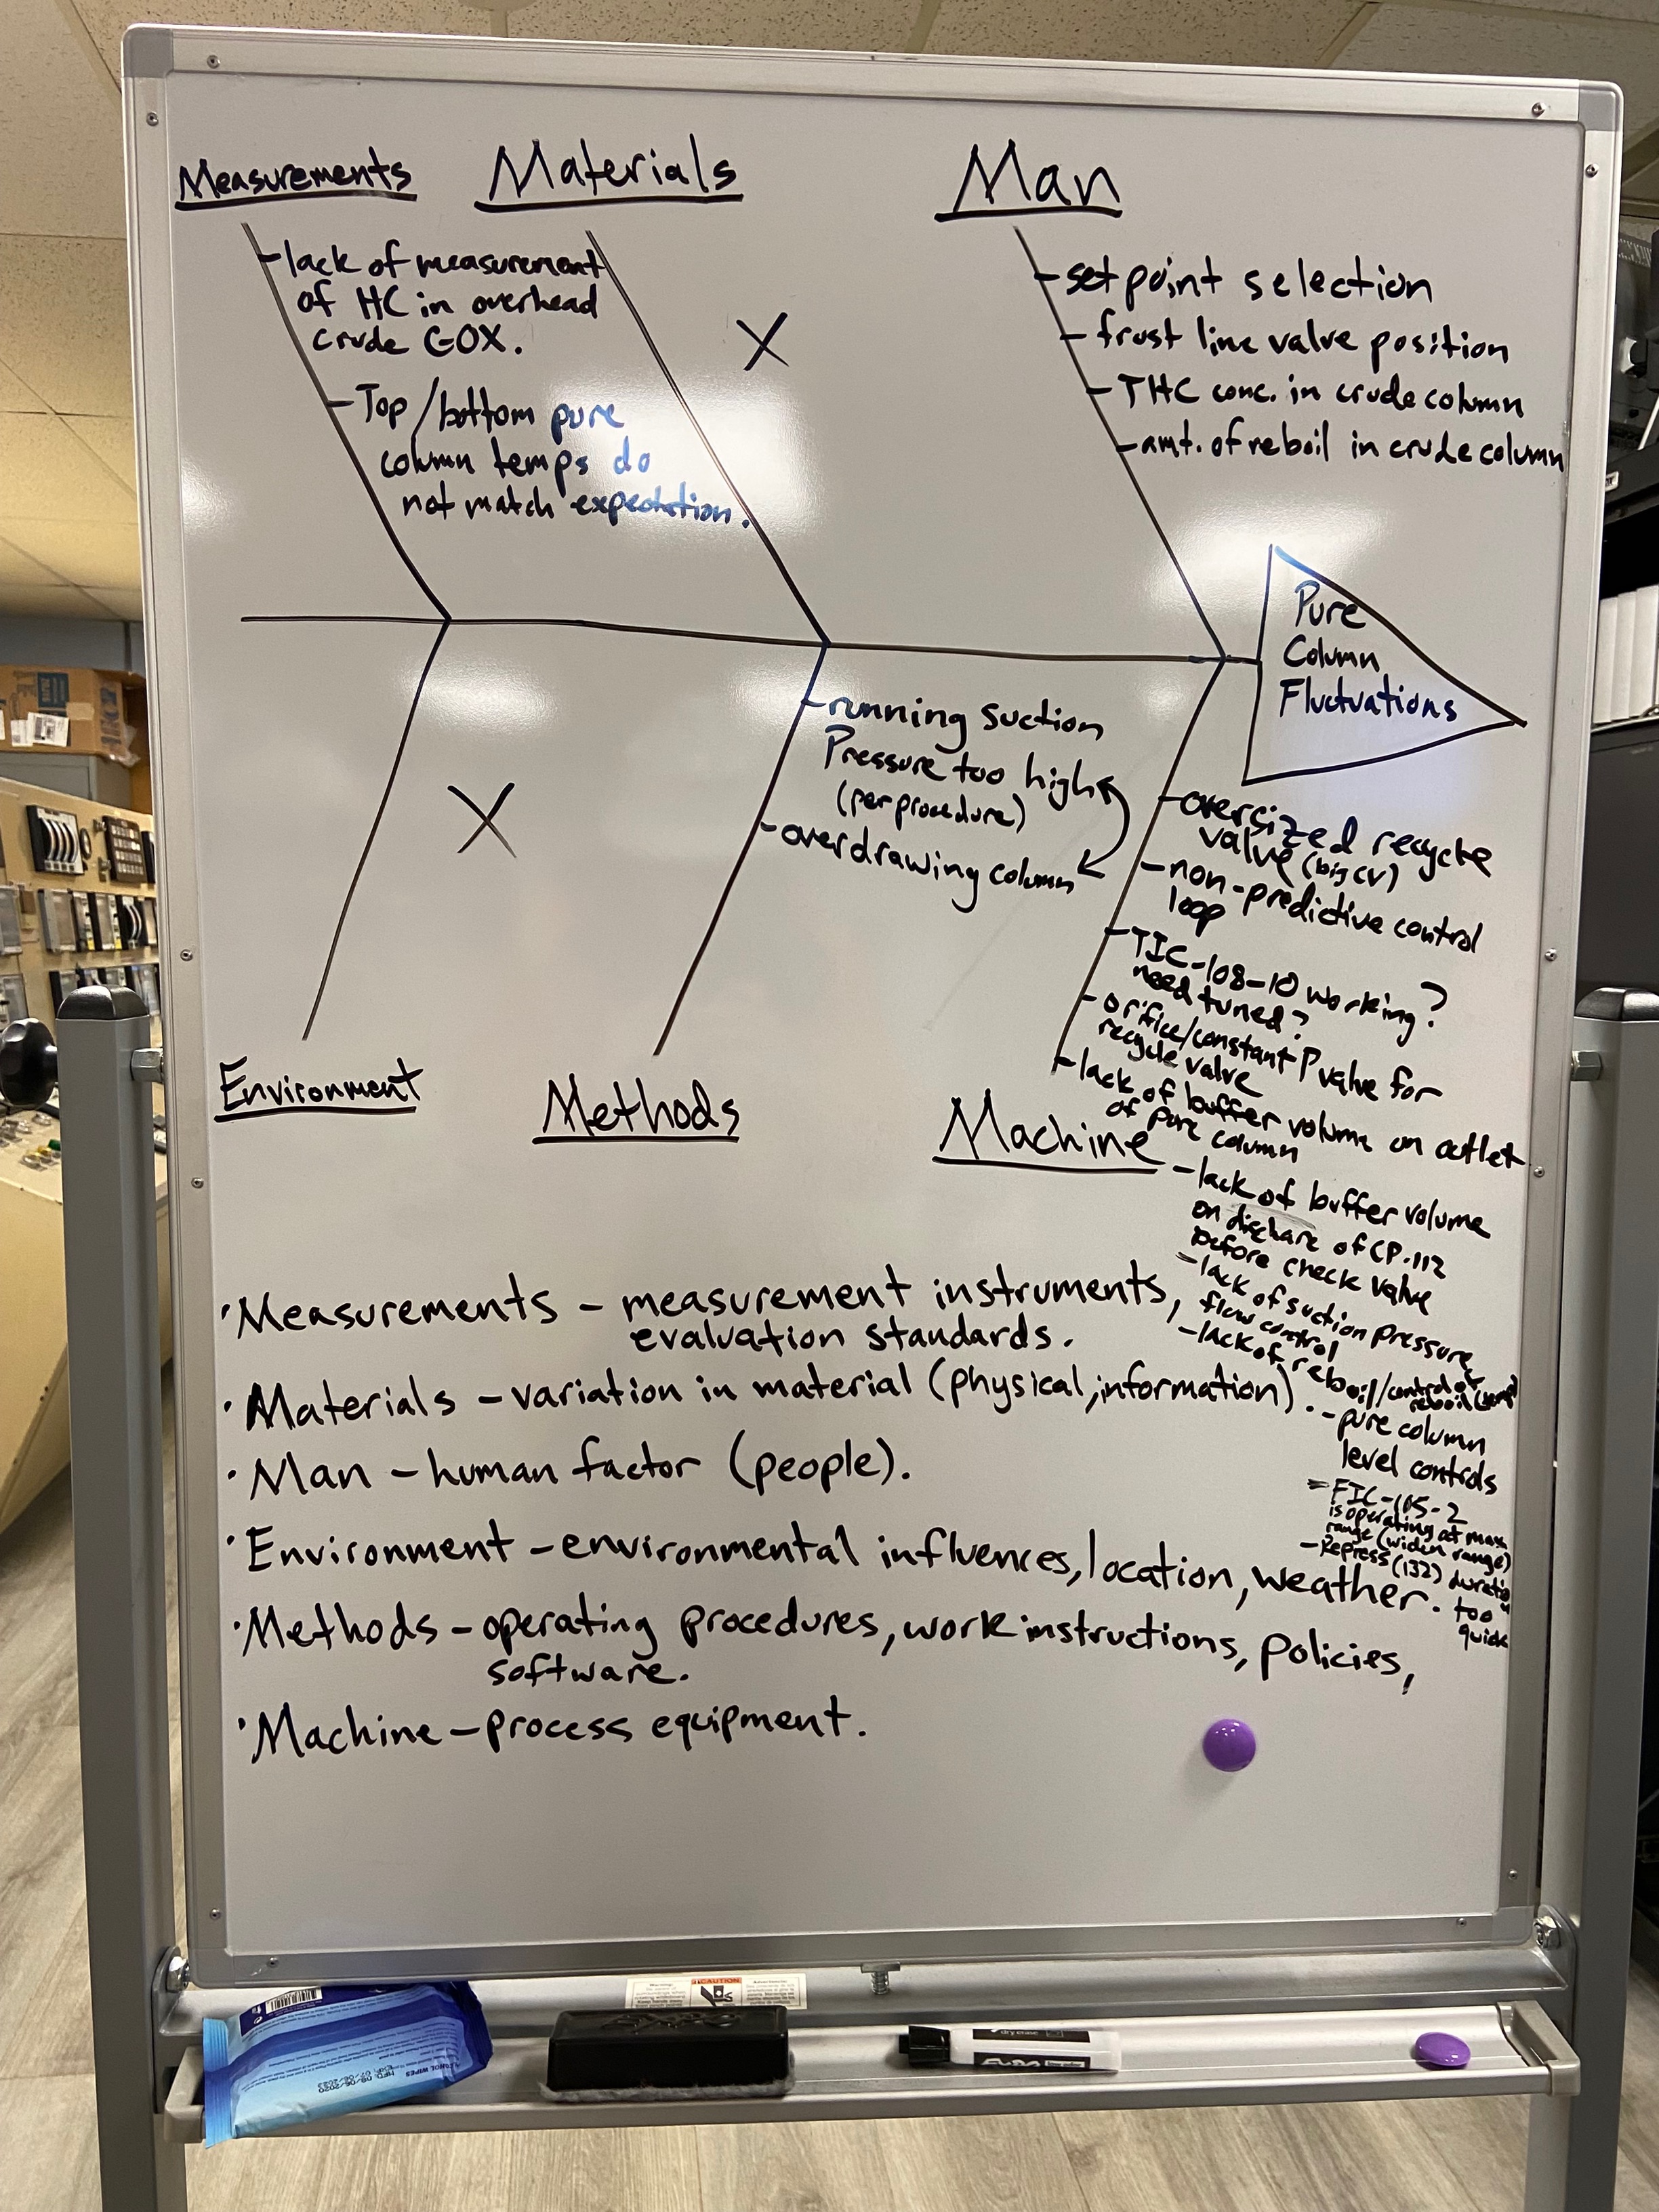 Measurements
Materials
Man
-lack of measurement
of HC in overhead
crude GOX.
-Top/bottom pure
column temps do
not match expectation.
X
-set point selection
-frost line valve position
-THC conc. in crude column
-amt. of reboil in crude column
Pure
Column
Fluctuations
X
-running suction
Pressure too high
(per procedure)
-overdrawing column
-oversized recycle
valve (big CV)
-non-predictive control
loop
-TIC-108-10 working?
need tuned?
-orifice/constant P valve for
recycle valve
-lack of buffer volume on outlet
of pure column
Environment
Methods
Machine
-lack of buffer volume
on discharc of CP.112
before check valve
-lack of suction pressure
flow control
-lack of reboil/control of
reboil
-pure column
level controls
-FIC-105-2
is operating at max
range (widen range)
-Repress (132) duration
too
quick
·Measurements - measurement instruments,
evaluation standards.
·Materials - variation in material (physical, information).
·Man - human factor (people).
·Environment - environmental influences, location, weather.
·Methods - operating procedures, work instructions, policies,
software.
·Machine - process equipment.
CAUTION
EXPO
MFD. 08/06/2020